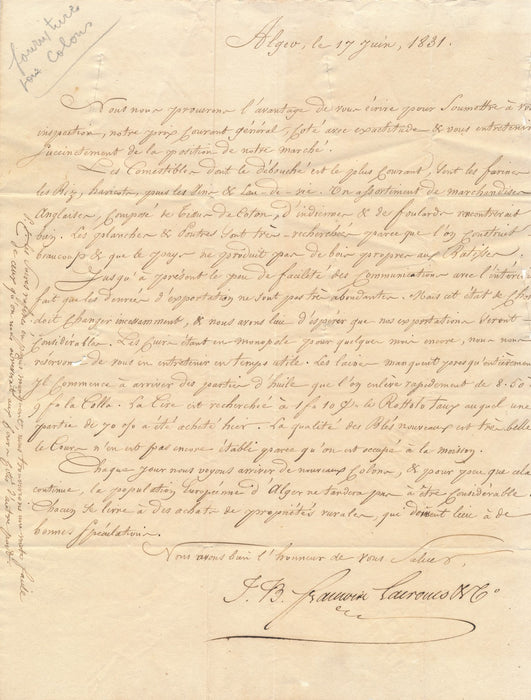 fourniture
aux Colons
Alger, le 17 juin, 1831.
Nous nous procurons l'avantage de vous écrire pour Soumettre à votre
inspection, notre prix Courant général, Coté avec exactitude & vous entretenir
Succinctement de la position de notre marché.
Les Comestibles dont le débouché est le plus Courant, Sont les farines
les Riz, haricots, puis les Vins & Eau-de-vie. Un assortiment de marchandises
Anglaises, Composé de tissus de Coton, d'indiennes & de foulards rencontrerait
bien. Les planches & Poutres Sont très-recherchées parce que l'on Construit
beaucoup & que le pays ne produit pas de bois propres aux Bâtisses.
Jusqu'à présent le peu de facilité des Communications avec l'intérieur
fait que les denrées d'exportation ne Sont pas très abondantes. Mais cet état de Choses
doit Changer incessamment, & nous avons lieu d'espérer que nos exportations Seront
Considérables. Les Cuirs étant en monopole pour quelques mois encore, nous nous
réservons de vous en entretenir en temps utile. Les laines manquent presqu'entièrement
Il Commence à arriver des parties d'huile que l'on enlève rapidement de 8.50 à
9 f. la Colla. La Cire est recherchée à 1 f 10 le Rottolo taux auquel une
partie de 70 a été acheté hier. La qualité des Blés nouveaux est très belle
le Cours n'en est pas encore établi parce qu'on est occupé à la moisson.
Chaque jour nous voyons arriver de nouveaux Colons, & pour peu que cela
continue, la population Européenne d'Alger ne tardera pas à être Considérable
Chacun Se livre à des achats de propriétés rurales, qui donnent lieu à de
bonnes Spéculations.
Nous avons bien l'honneur de Vous Saluer,
J. B. & Co